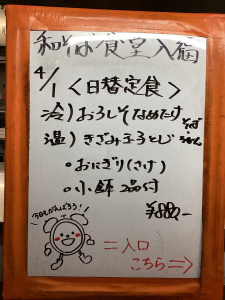 和そば食堂入福
4/1 <日替定食>
冷)おろしそなめたけ
温)きざみ玉子とじ
そば
・おにぎり(さけ)
・小鉢2品付
¥880-
今日もがんばろう!
=入口
こちら⇒